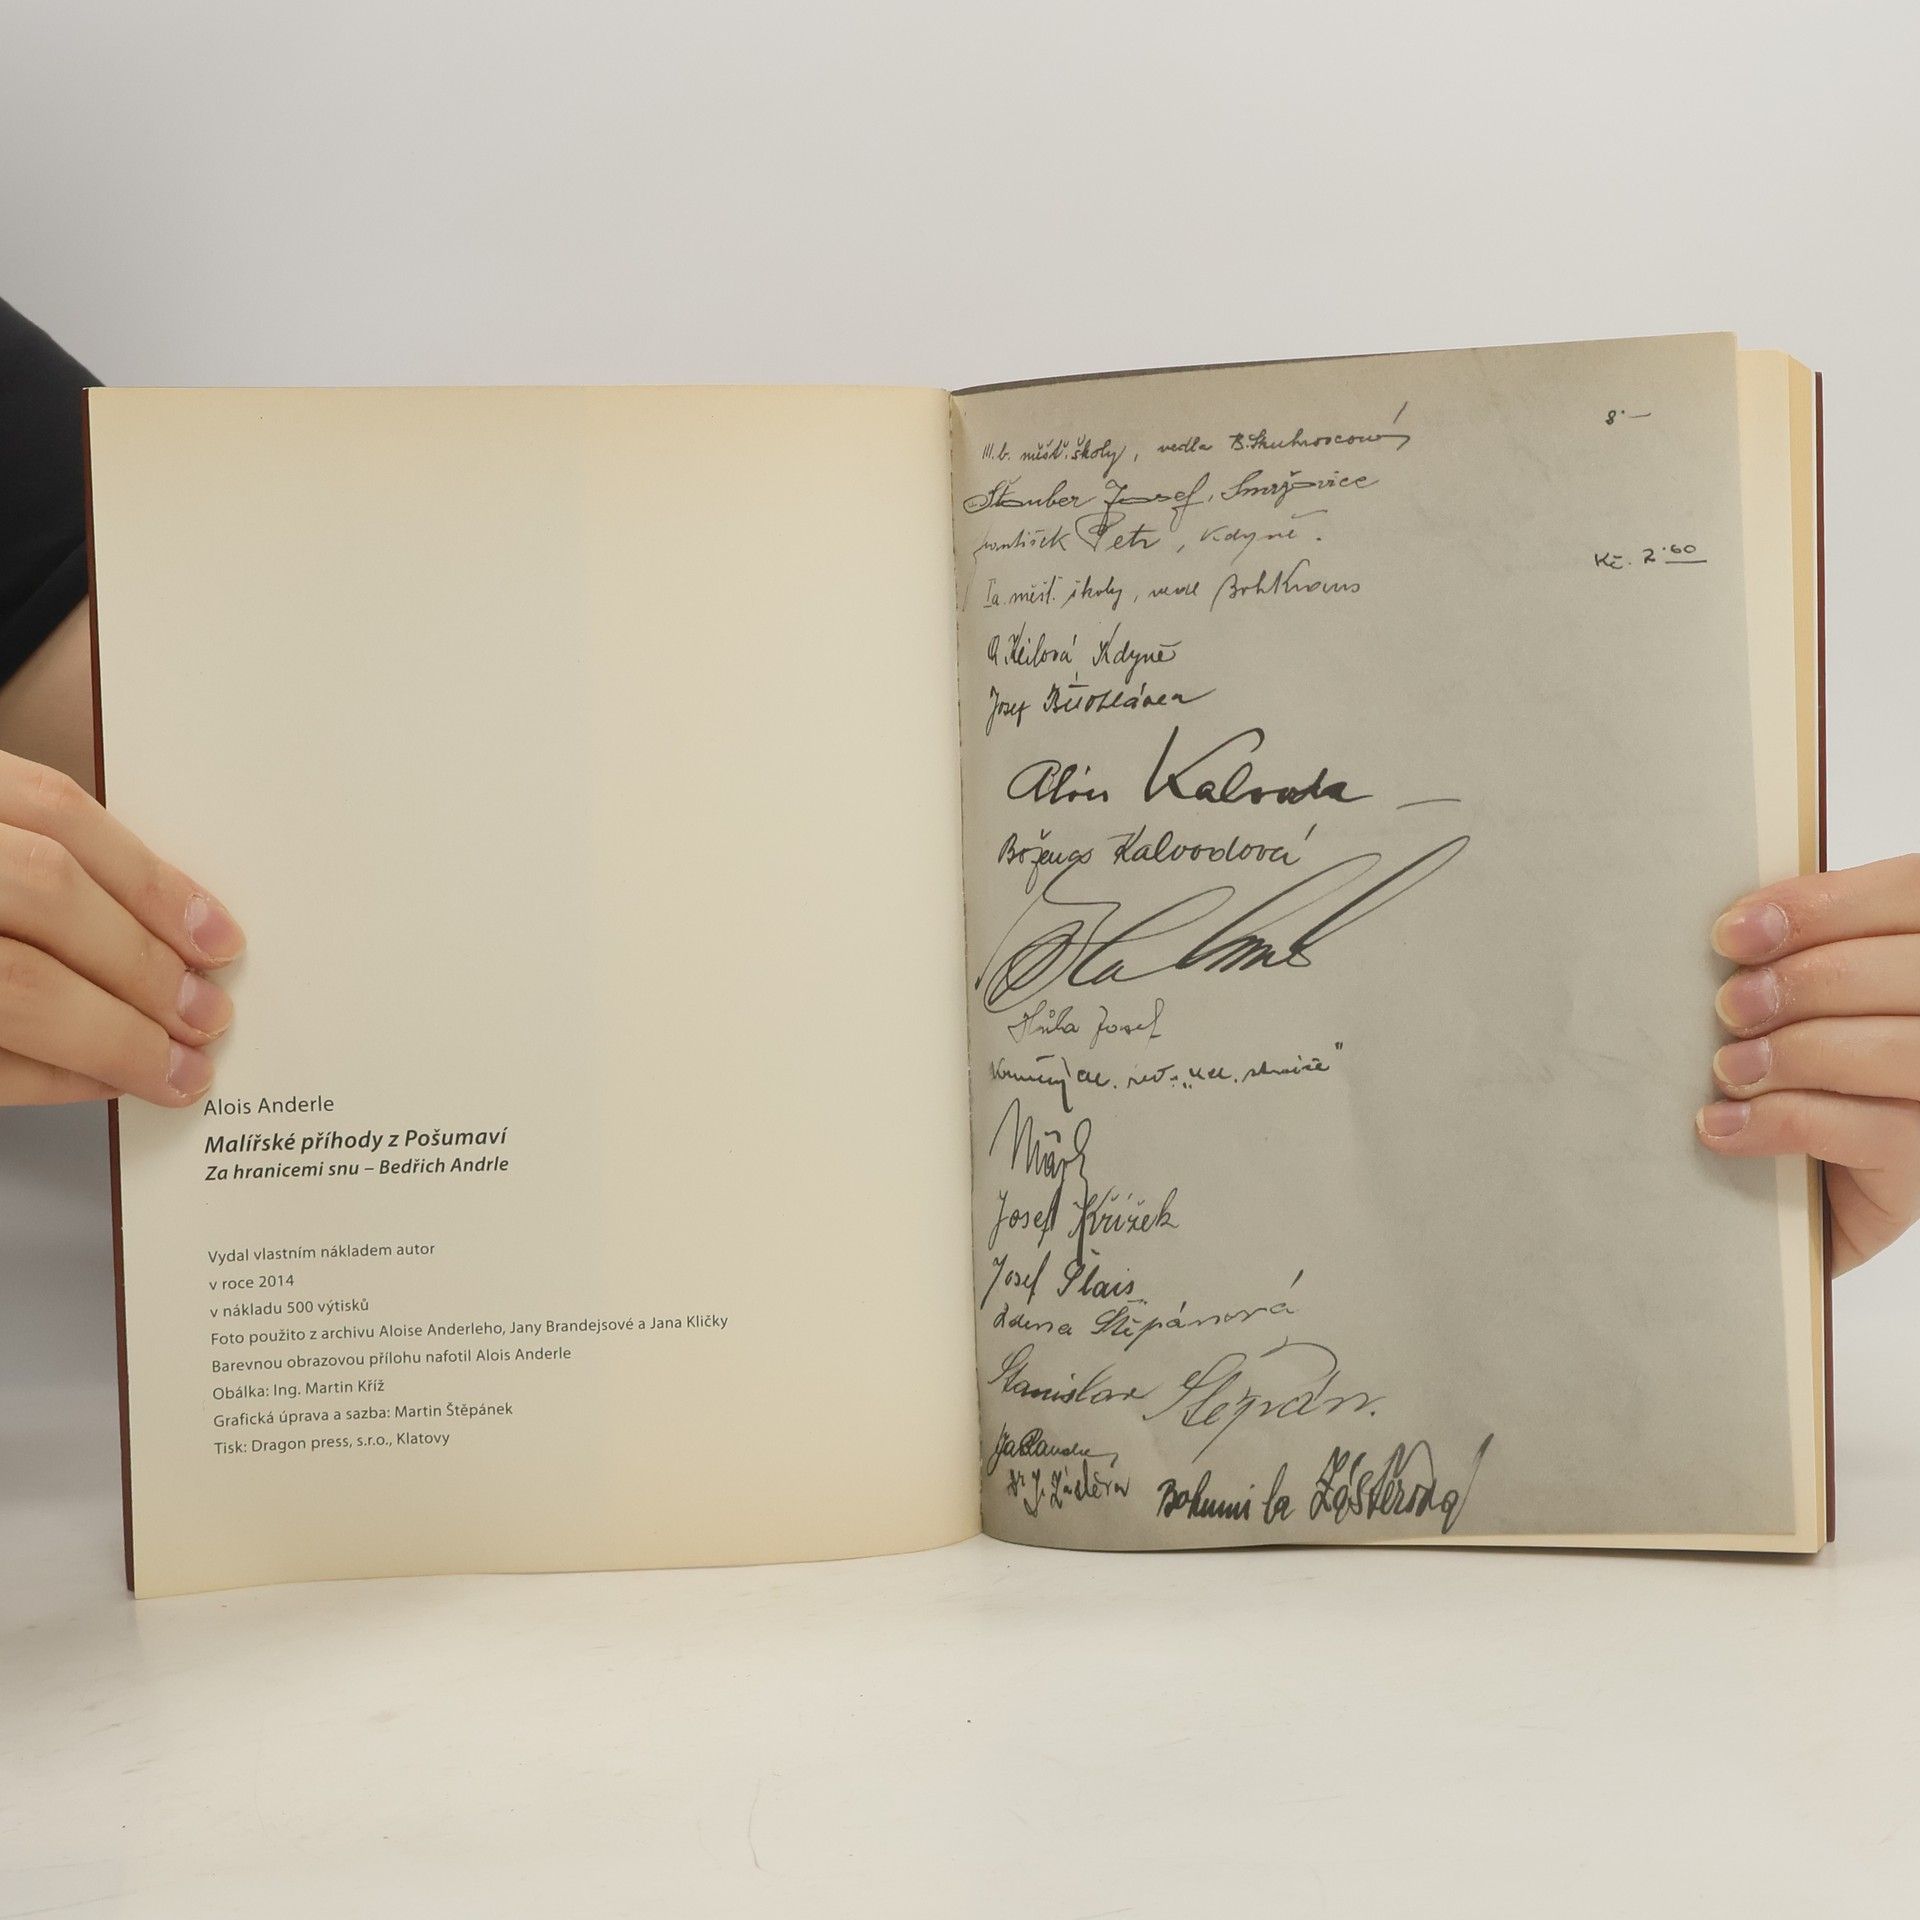 Alois Anderle
Malířské příhody z Pošumaví
Za hranicemi snu – Bedřich Andrle
Vydal vlastním nákladem autor
v roce 2014
v nákladu 500 výtisků
Foto použito z archivu Aloise Anderleho, Jany Brandejsové a Jana Kličky
Barevnou obrazovou přílohu nafotil Alois Anderle
Obálka: Ing. Martin Kříž
Grafická úprava a sazba: Martin Štěpánek
Tisk: Dragon press, s.r.o., Klatovy
III. b. měšť. školy, vedla 8·—
Josef, Smržovice
František Petr, Kdyně.
Kč. 2·60
Ia. měšť. školy, vedl Boh Kraus
A Keilová Kdyně
Josef
Alois Kalvoda —
Božena Kalvodová
Hůla Josef
Josef Křížek
Josef Plais
Zdena Štěpánová
Stanislav Štěpán.
Dr J. Zástěra Bohumila Zástěrová